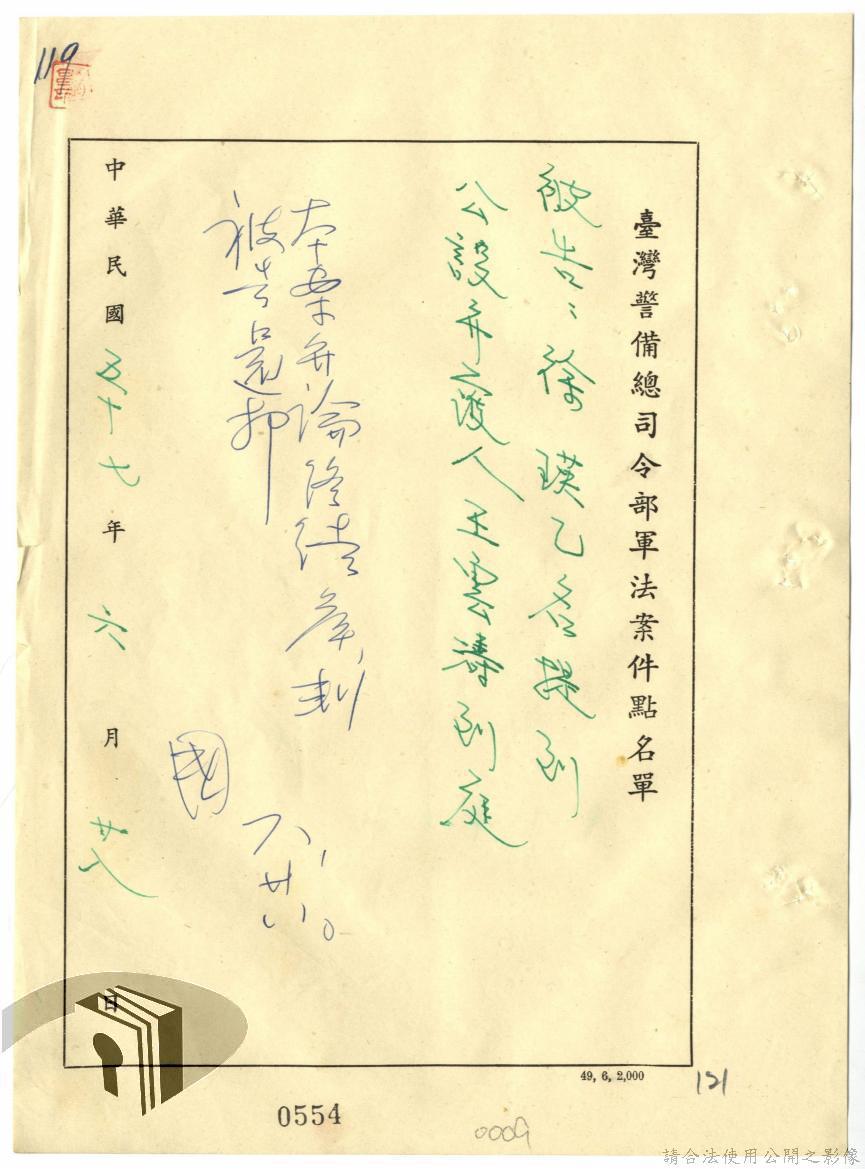 119
臺灣警備總司令部軍法案件點名單
被告：徐瑛乙名提到
公設弁護人王雲濤到庭
本案弁論終結候判
被告還押
國
六、廿八。
中華民國五十七年六月廿八日
49, 6, 2,000
121
0554
0009
請合法使用公開之影像